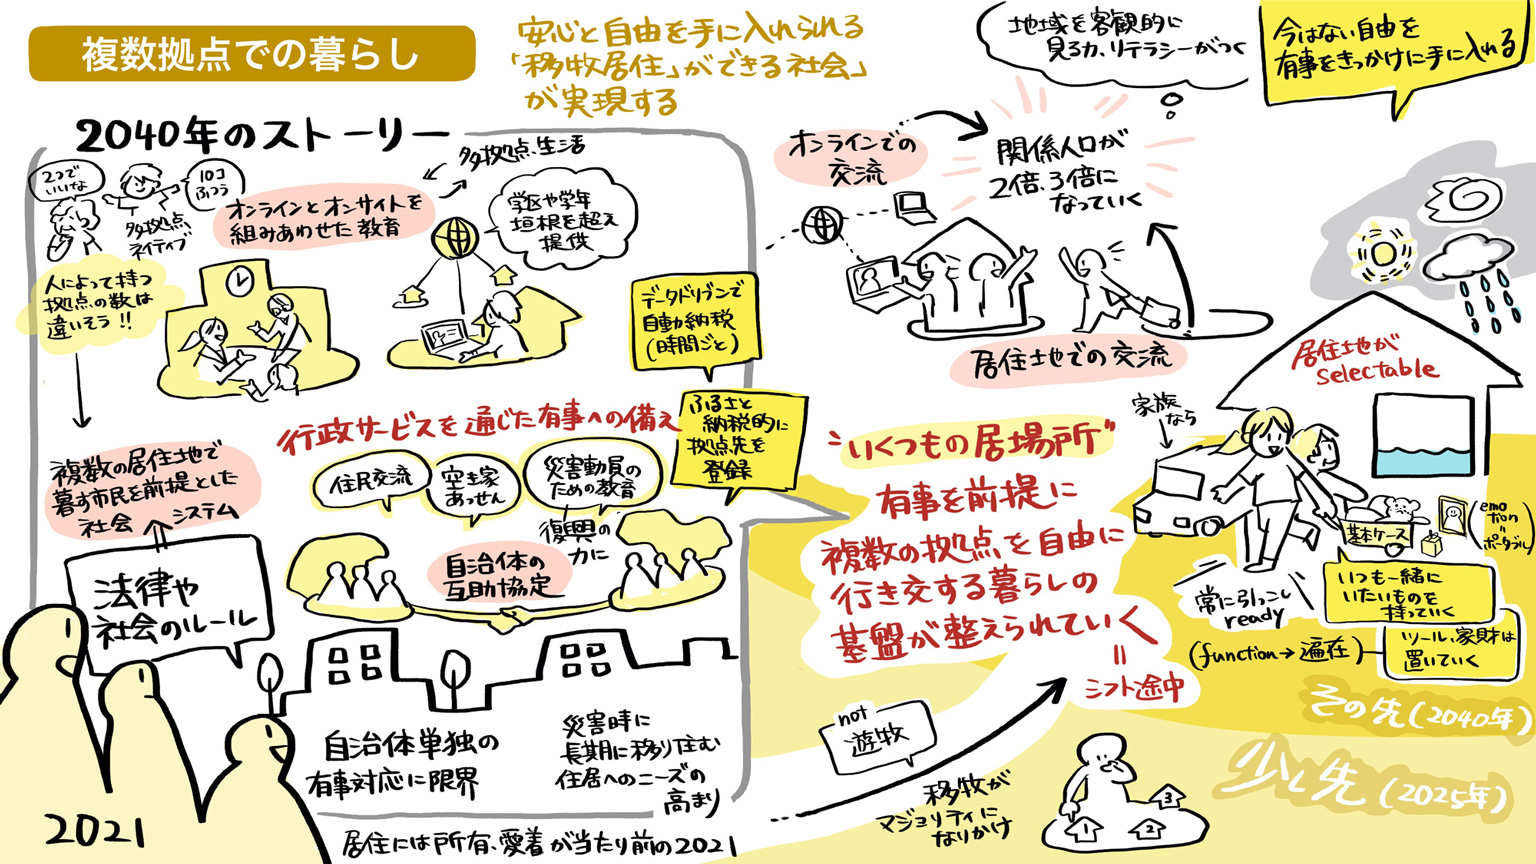 複数拠点での暮らし
安心と自由を手に入れられる
「移牧居住」ができる社会」
が実現する
2040年のストーリー
2つで
いいな
10コ
ふつう
多拠点
ネイティブ
人によって持つ
拠点の数は
違いそう!!
オンラインとオンサイトを
組みあわせた教育
多拠点、生活
学区や学年
垣根を超え
提供
データドリブンで
自動納税
(時間ごと)
ふるさと
納税的に
拠点先を
登録
行政サービスを通じた有事への備え
住民交流
空き家
あっせん
災害動員の
ための教育
復興の
力に
自治体の
互助協定
複数の居住地で
暮す市民を前提とした
社会システム
法律や
社会のルール
自治体単独の
有事対応に限界
災害時に
長期に移り住む
住居へのニーズの
高まり
2021
居住には所有、愛着が当たり前の2021
地域を客観的に
見る力、リテラシーがつく
今はない自由を
有事をきっかけに手に入れる
オンラインでの
交流
関係人口が
2倍、3倍に
なっていく
居住地での交流
"いくつもの居場所"
有事を前提に
複数の拠点を自由に
行き交する暮らしの
基盤が整えられていく
=
シフト途中
居住地が
selectable
家族
なら
基本ケース
(emotion
=
ポータブル)
いつも一緒に
いたいものを
持っていく
常に引っこし
ready
(function→遍在)
ツール、家財は
置いていく
その先(2040年)
少し先(2025年)
not
遊牧
移牧が
マジョリティに
なりかけ
1
2
3